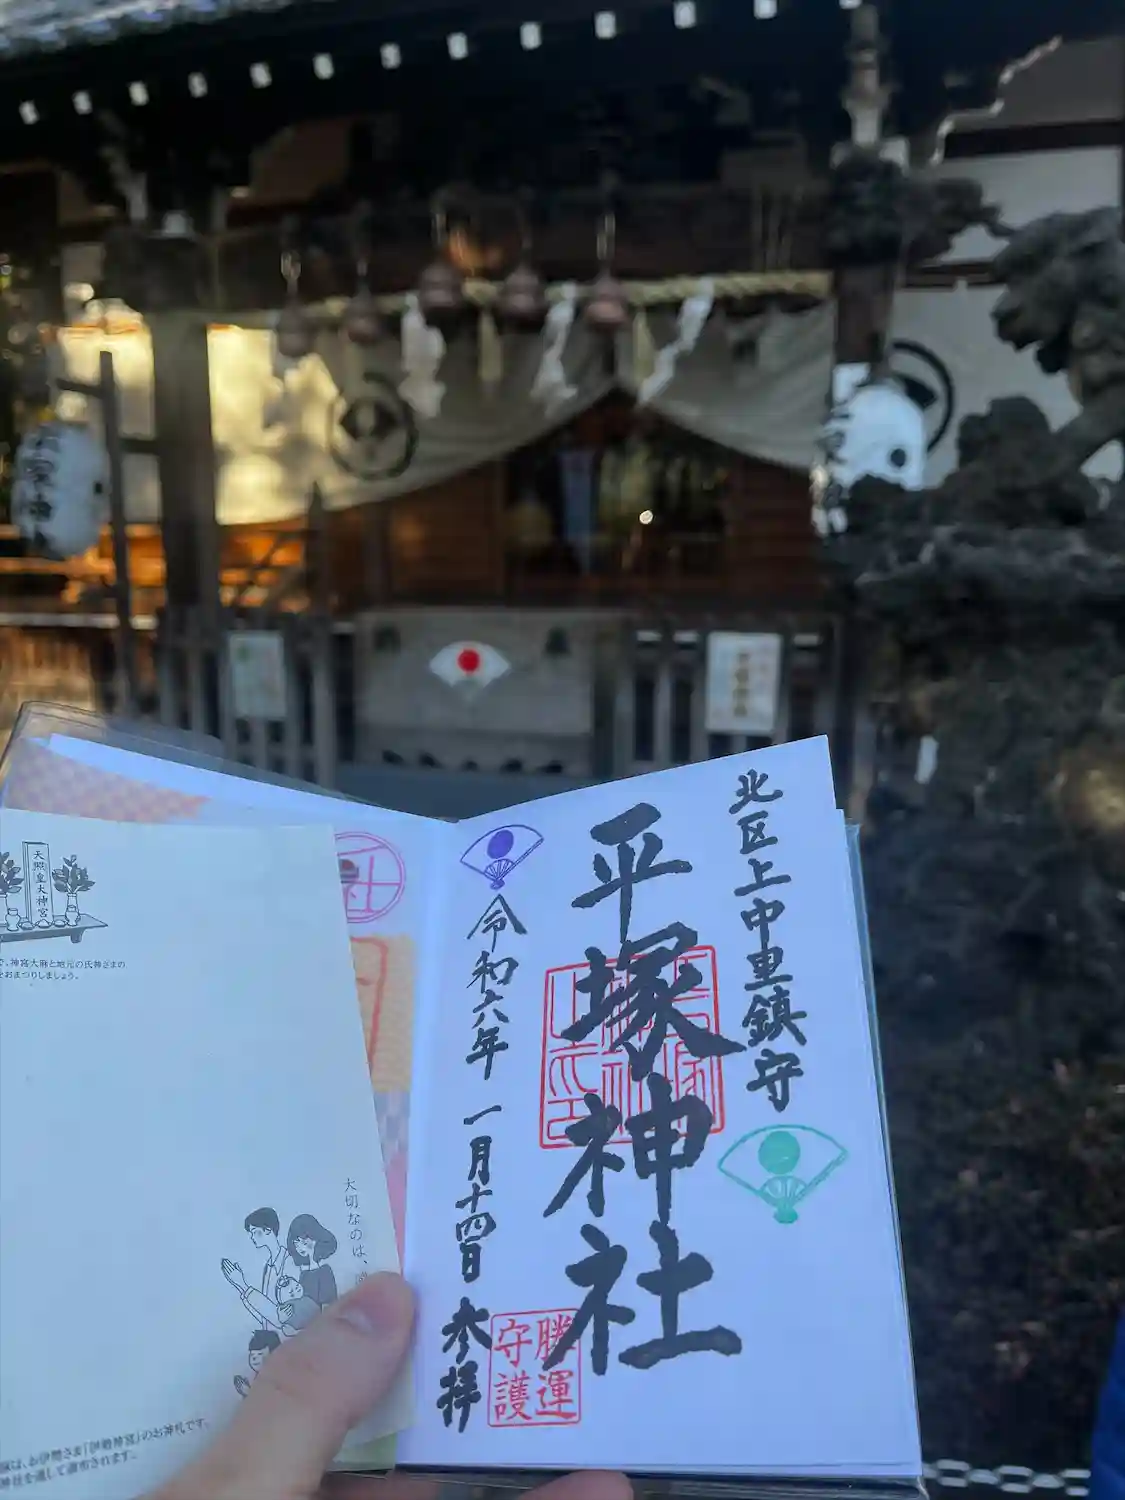 北区上中里鎮守
平塚神社
令和六年 一月十四日 参拝
勝運
守護
天照皇大神宮
で、神宮大麻と地元の氏神さまの
をおまつりしましょう。
大切なのは、
は、お伊勢さま「伊勢神宮」のお神札です。
神社を通して頒布されます。
社